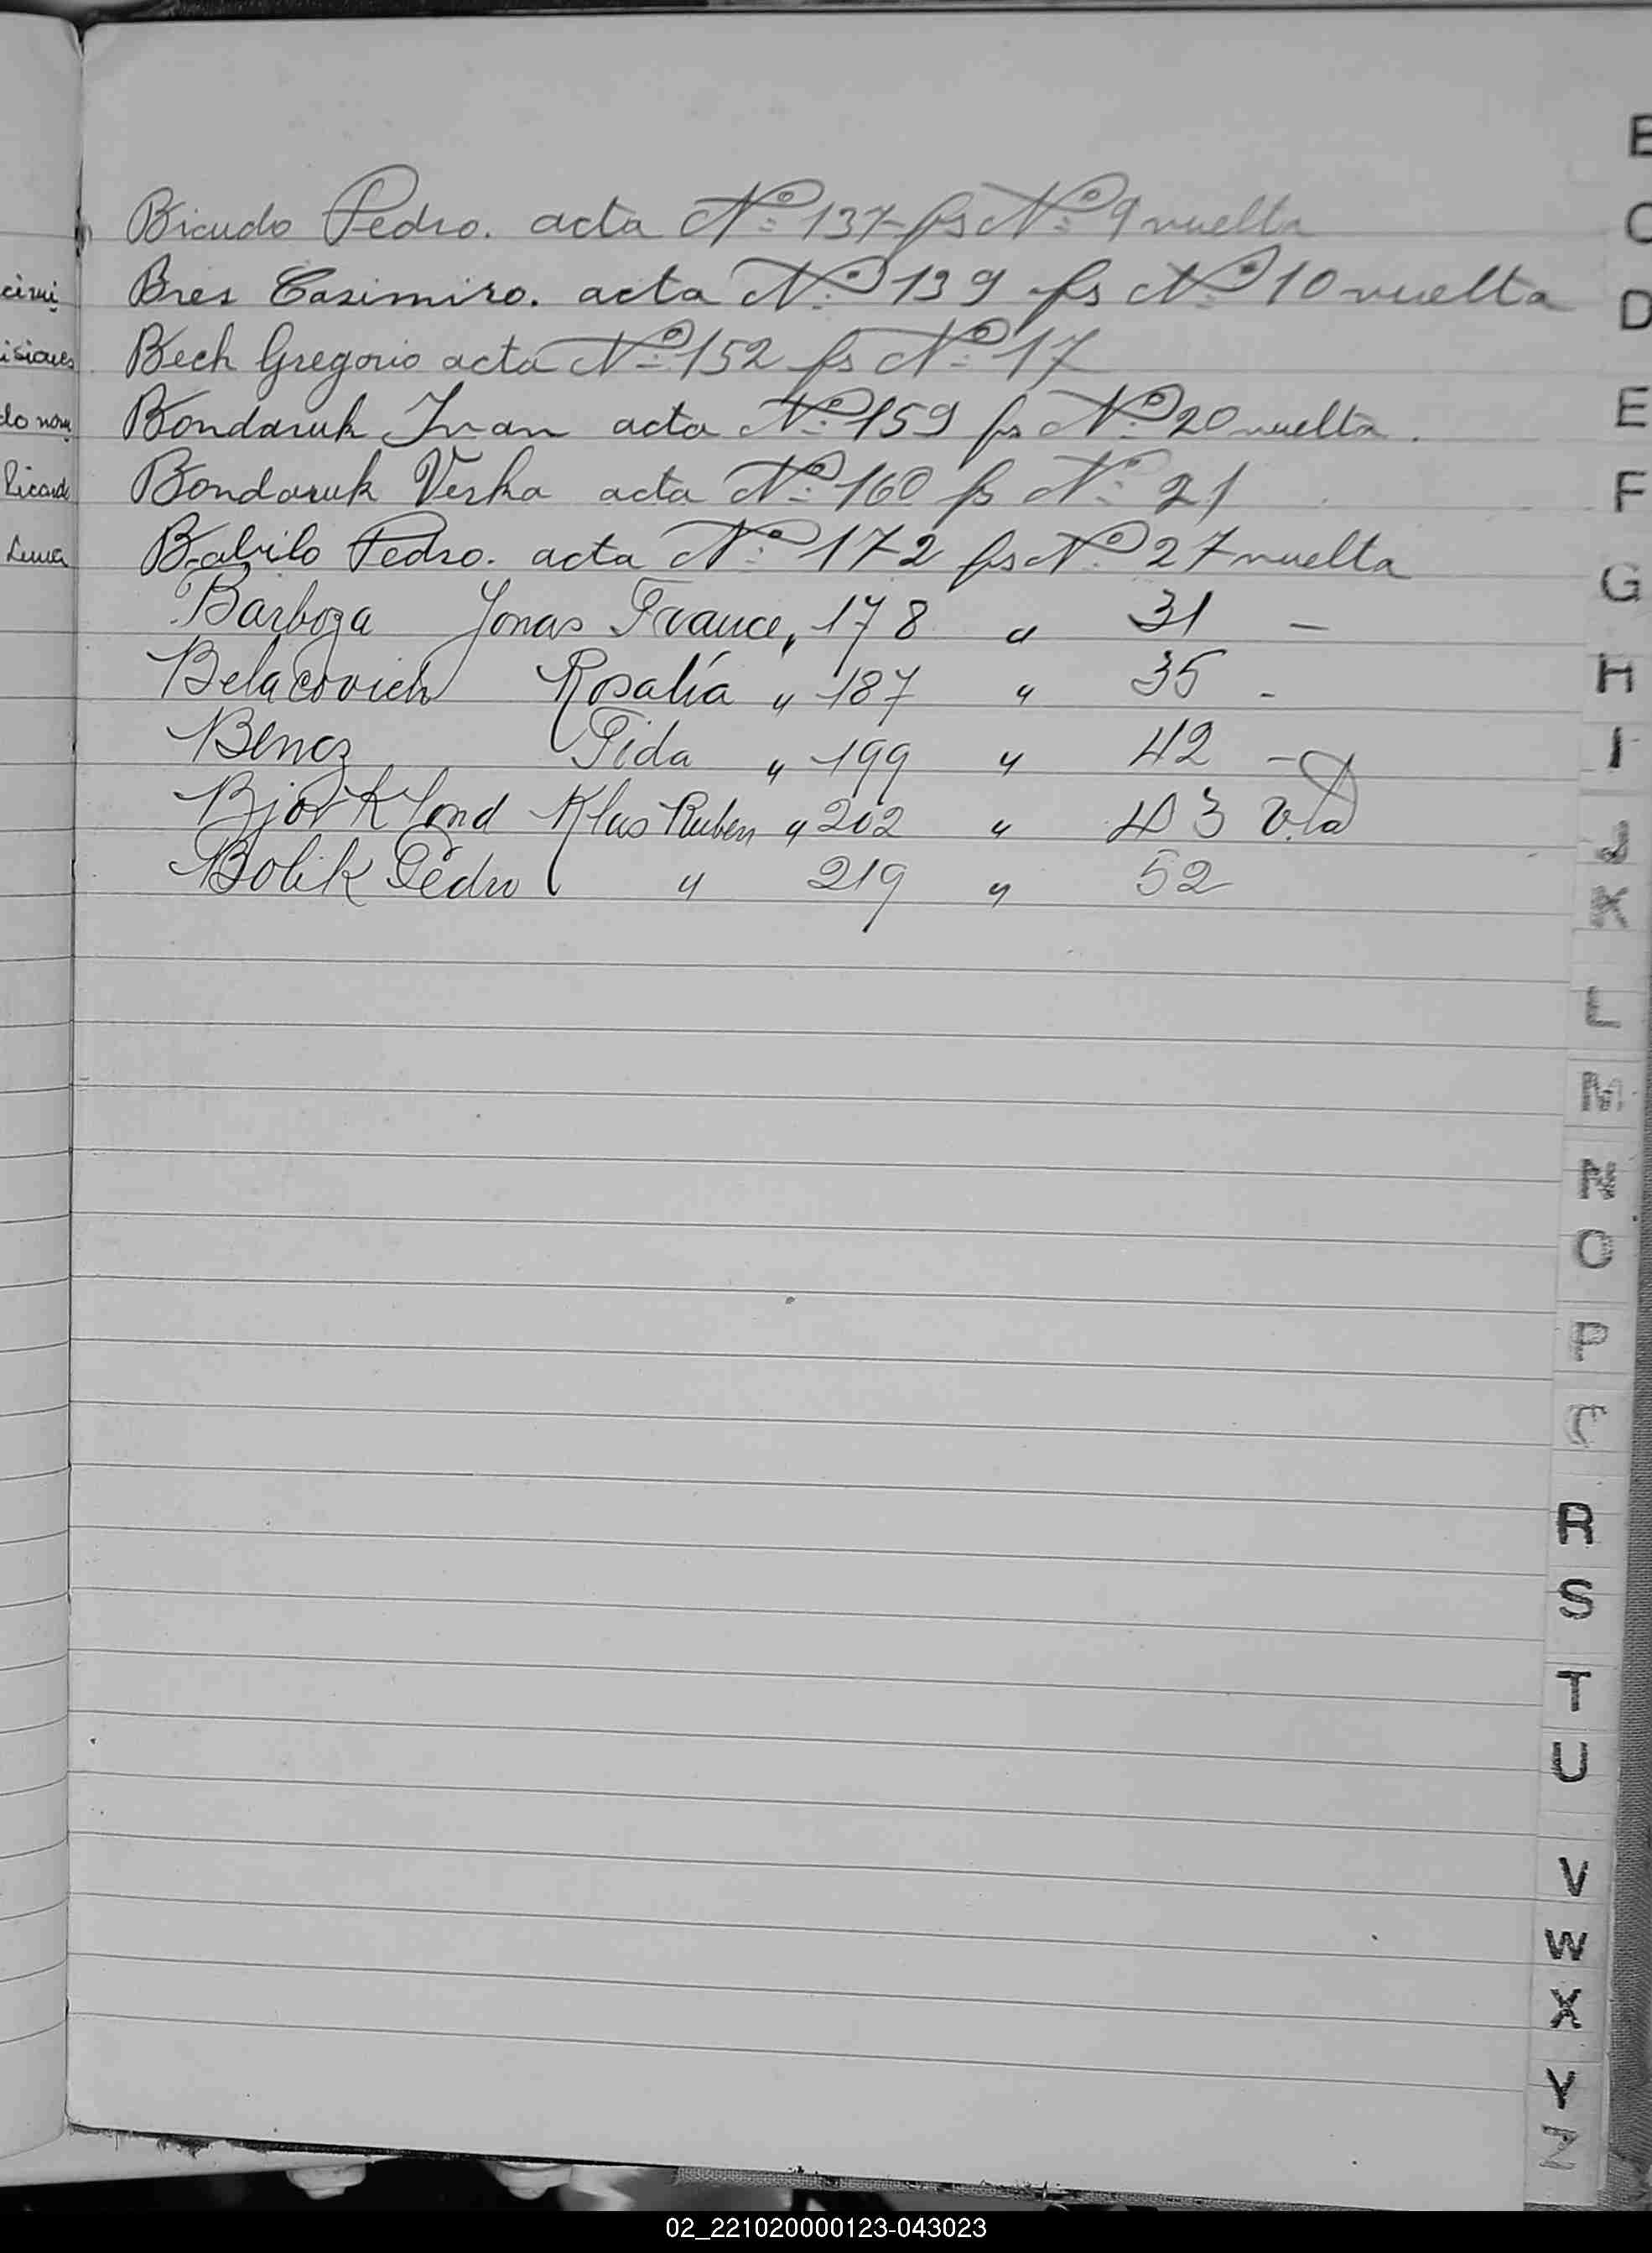 Bicudo Pedro. acta Nº 137 fs Nº 9 vuelta
Bres Casimiro. acta Nº 139 fs Nº 10 vuelta
Bech Gregorio acta Nº 152 fs Nº 17
Bondaruk Ivan acta Nº 159 fs Nº 20 vuelta.
Bondaruk Verka acta Nº 160 fs Nº 21
Babilo Pedro. acta Nº 172 fs Nº 27 vuelta
Barboza Jonas France, 178 " 31 —
Belacovich Rosalía " 187 " 35 -
Bencz Fida " 199 " 42 -
Bjorklond Klas Ruben " 202 " 43 vta
Bolik Pedro " 219 " 52
cirui
isiones
do nom
Ricard
Luua
B
C
D
E
F
G
H
I
J
K
L
M
N
O
P
R
S
T
U
V
W
X
Y
Z
02_221020000123-043023